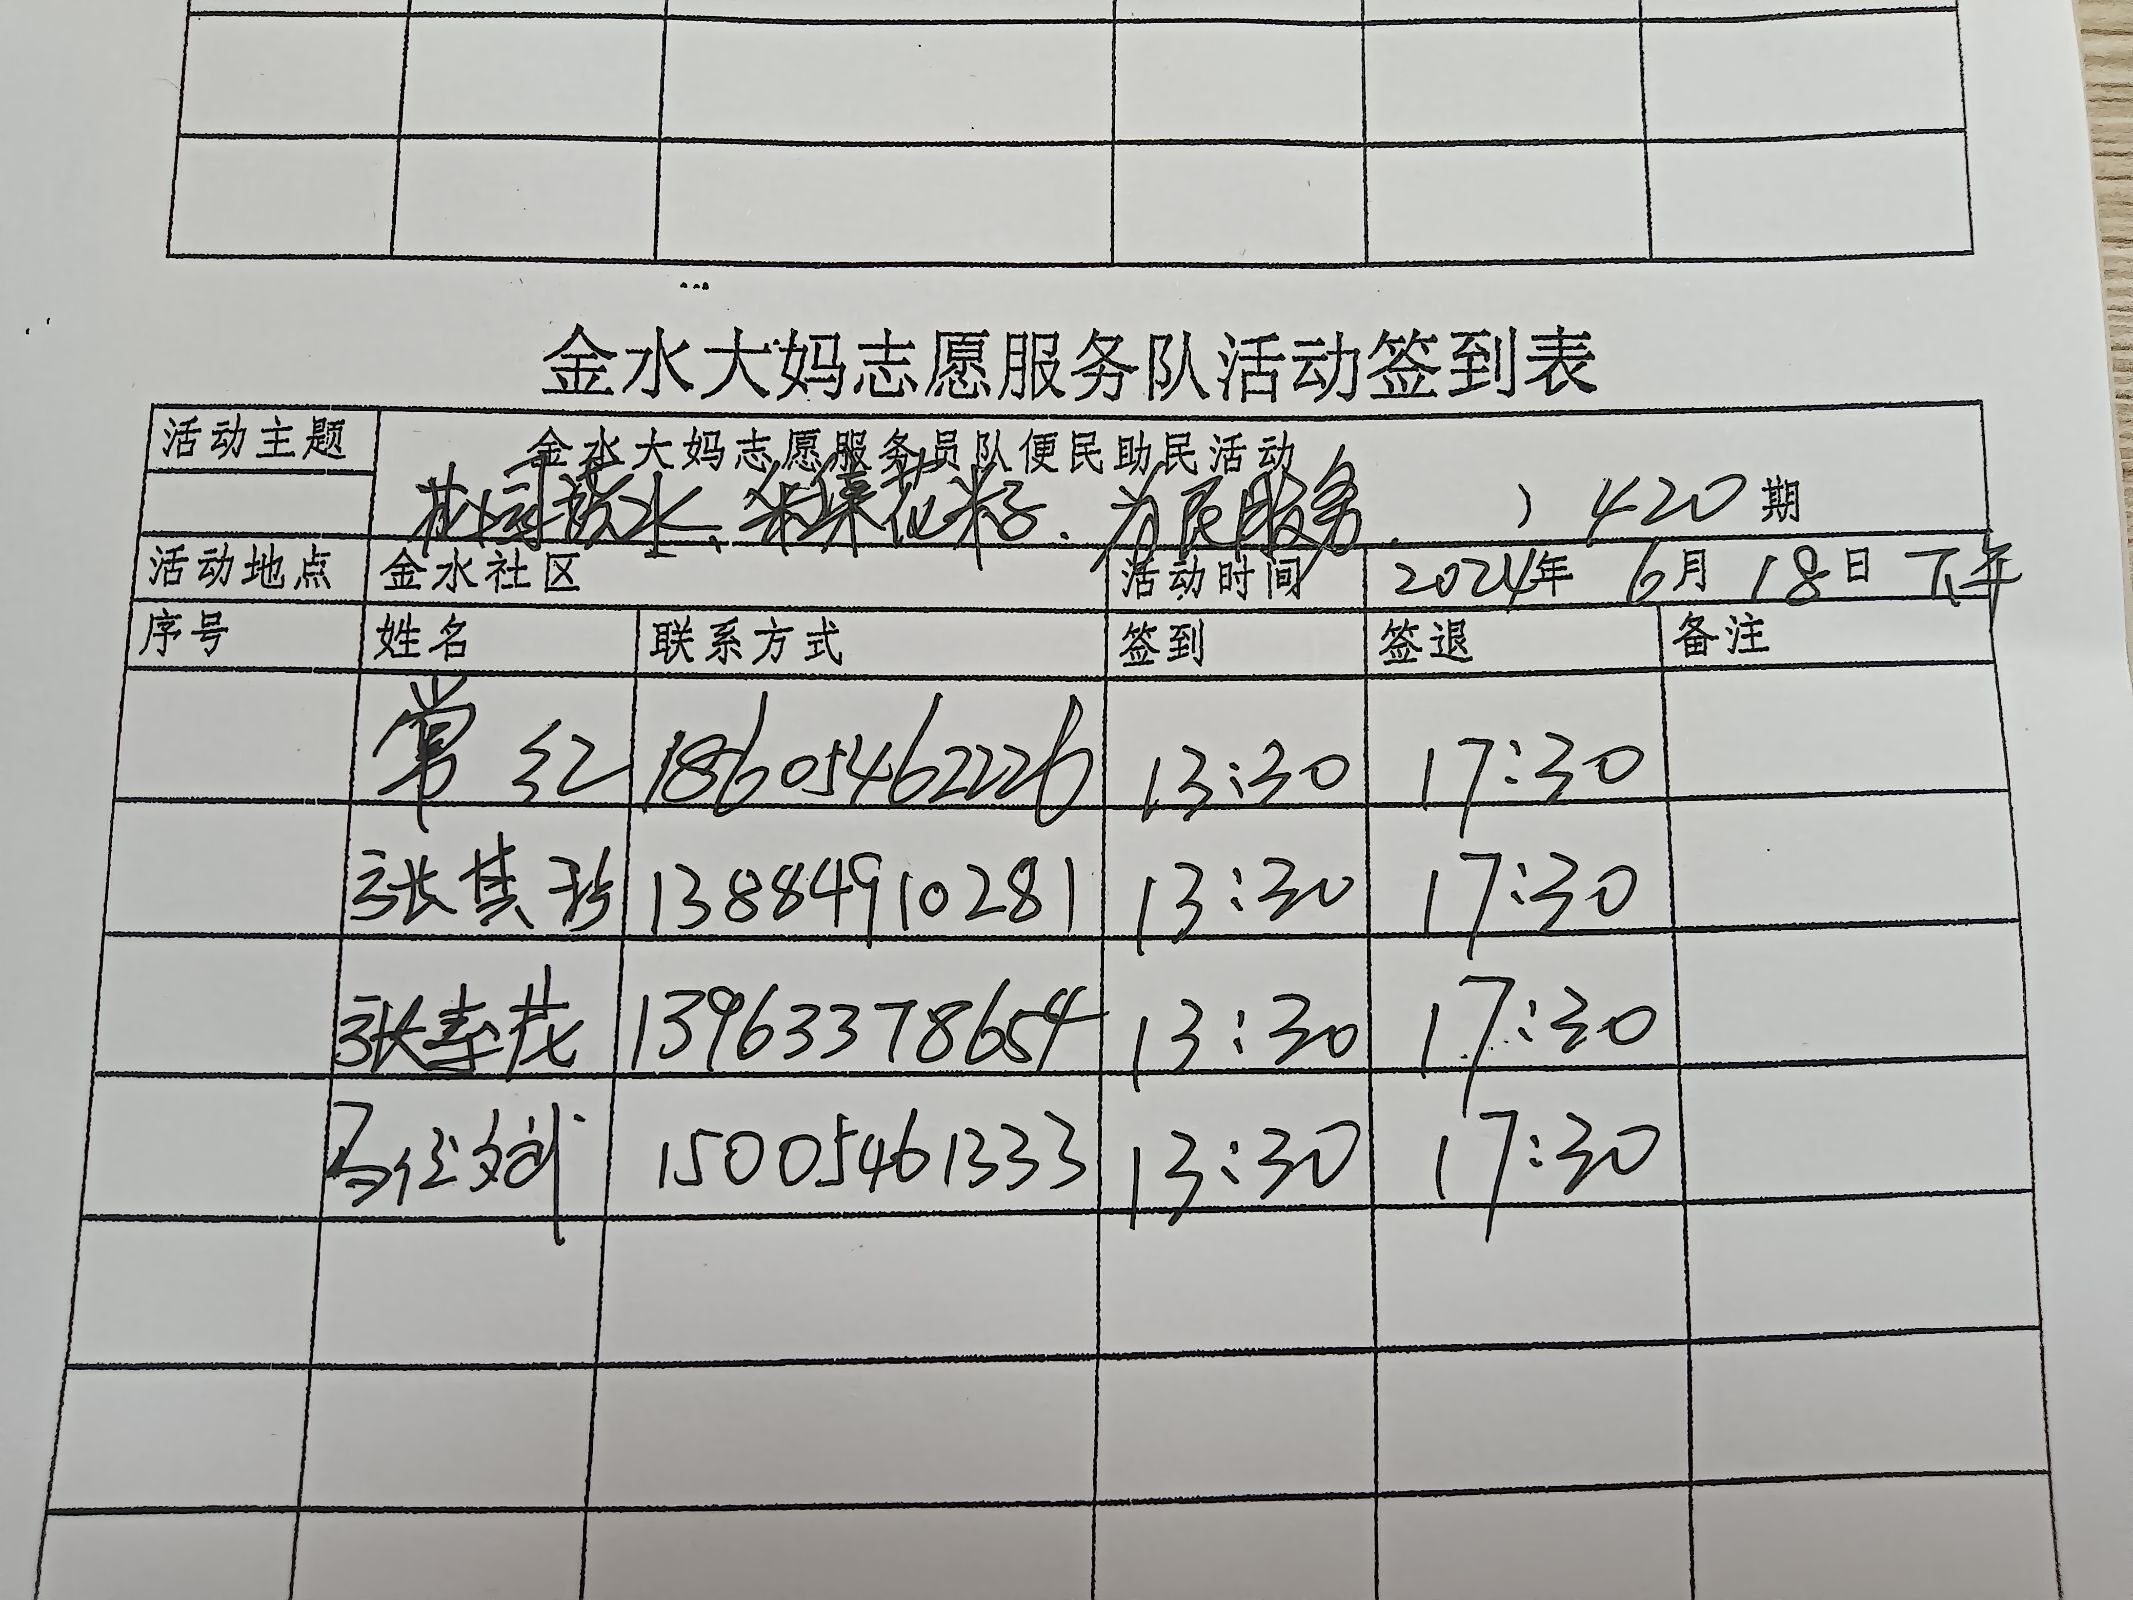 金水大妈志愿服务队活动签到表
活动主题 金水大妈志愿服务员队便民助民活动
花园浇水、采集花籽、为民服务 ） 420期
活动地点 金水社区 活动时间 2024年 6月 18日 下午
序号 姓名 联系方式 签到 签退 备注
常红 18605462226 13:30 17:30
张其珍 13884910281 13:30 17:30
张寿茂 13963378654 13:30 17:30
马文斌 15005461333 13:30 17:30